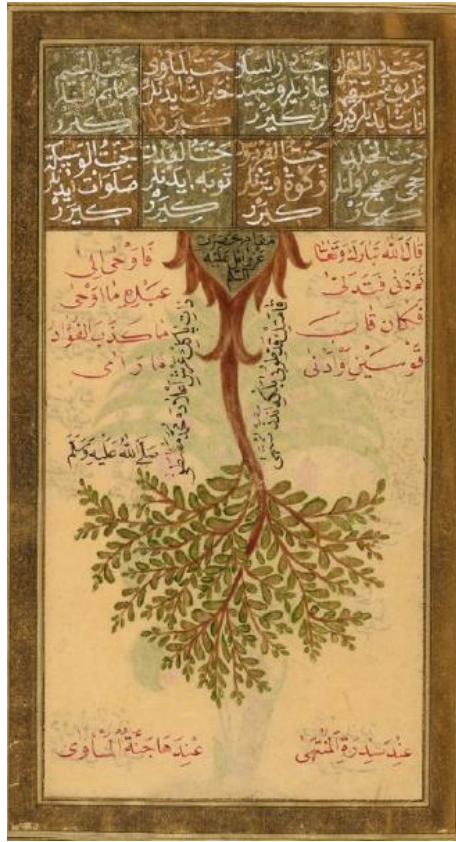 جنت دار القرار
طريق مستقيمه
جنت دار السلام
غازيلر و شهيد
لر كيرر
جنت المأوى
خيرات ايدنلر
كيرر
جنت النعيم
صايم اولنلر
كيرر
جنت الخلد
حجى صحيح اولنلر
كيرر
جنت الفردوس
زكوة ويرنلر
كيرر
جنت العدن
توبه ايدنلر
كيرر
جنت الوسيلة
صلوات ايدنلر
كيرر
مقام حضرت
عزرائيل عليه
السلام
قَالَ الله تبارك وتعا
ثم دنى فتدلى
فكان قاب
قوسين او ادنى
فاوحى الى
عبده ما اوحى
ما كذب الفؤاد
ما راى
صلى الله عليه وسلم
عند سدرة المنتهى
عندها جنة المأوى